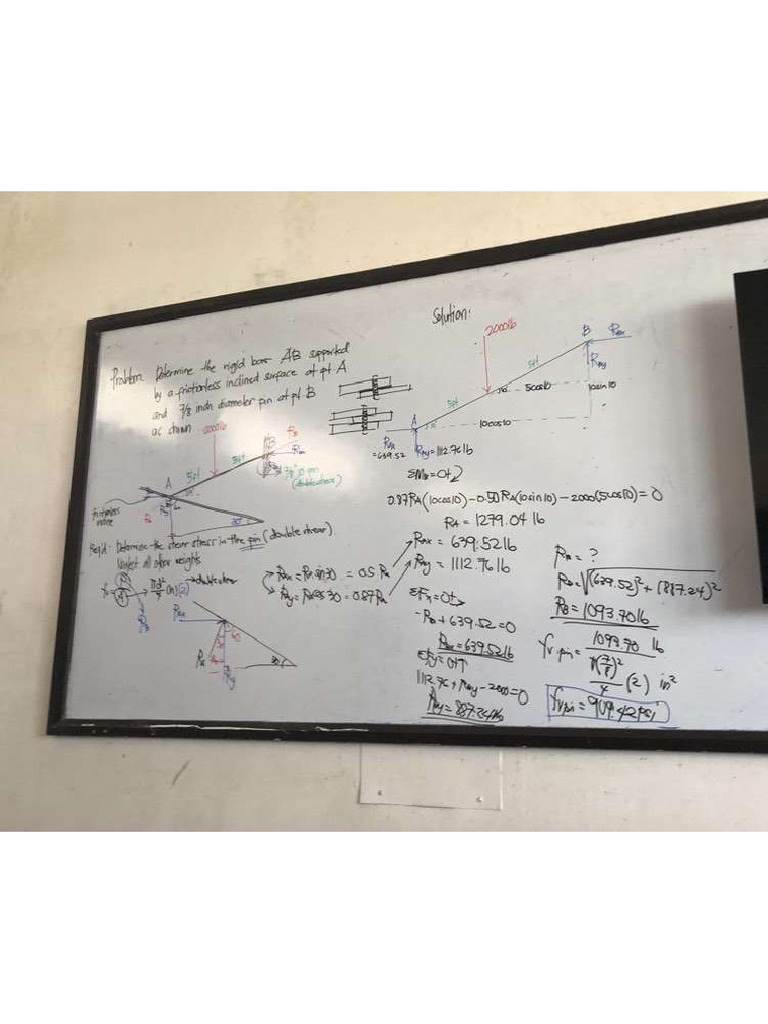 Problem: Determine the rigid bar AB supported
by a frictionless inclined surface at pt. A
and 7/8 inch diameter pin at pt B
as shown
2000lb
5ft
5ft
A
B
RB
7/8" Ø pin
(double shear)
frictionless
30°
Req'd: Determine the shear stress in the pin (double shear).
Neglect all other weights
πd²/4 (n) (2) → double shear
RAx = RA sin 30 = 0.5 RA
RAy = RA cos 30 = 0.87 RA
RAx
RA
30
60
RAy
30°
Solution:
2000lb
B
RBx
RBy
5ft
5ft
10°
5cos10
10sin10
A
10°
10cos10
RAx = 639.52
RAy = 1112.76 lb
ΣMB = 0+
0.87RA(10cos10) - 0.50RA(10sin10) - 2000(5cos10) = 0
RA = 1279.04 lb
RAx = 639.52 lb
RAy = 1112.76 lb
ΣFx = 0+→
-RB + 639.52 = 0
RBx = 639.52 lb
ΣFy = 0+↑
1112.76 + RBy - 2000 = 0
RBy = 887.24 lb
RB = ?
RB = √(639.52)² + (887.24)²
RB = 1093.70 lb
fv.pin = 1093.70 lb
π(7/8)²/4 (2) in²
fv.pin = 909.42 psi